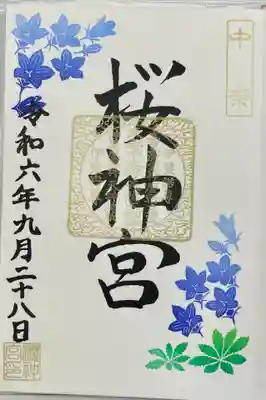 中祭
桜神宮
令和六年九月二十八日